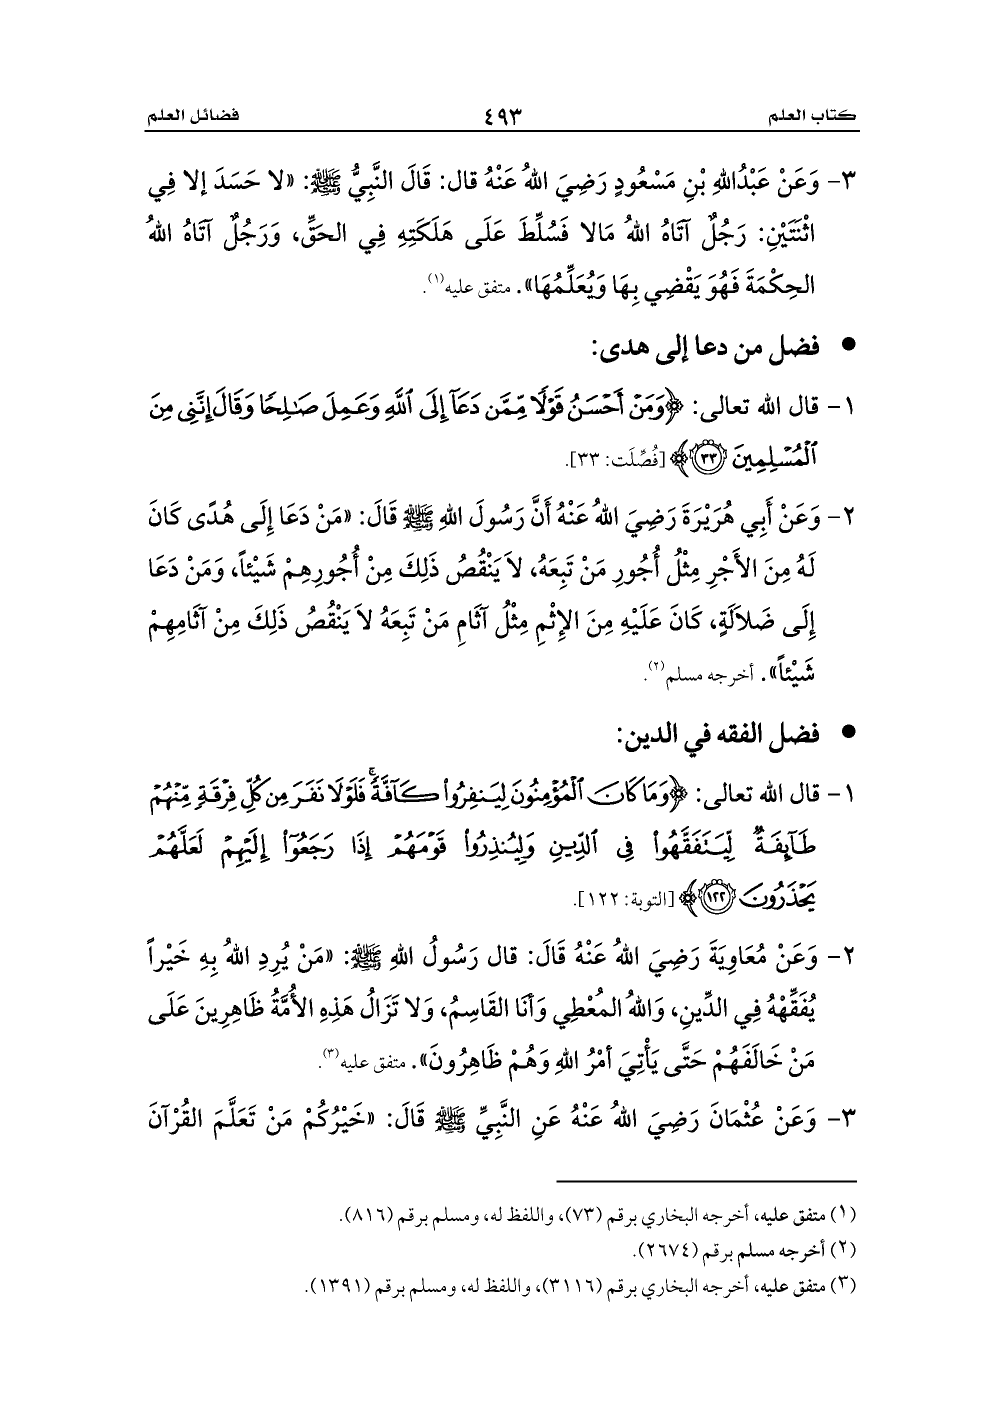 كتاب العلم ٤٩٣ فضائل العلم
٣- وَعَنْ عَبْدُاللهِ بْنِ مَسْعُودٍ رَضِيَ اللهُ عَنْهُ قال: قَالَ النَّبِيُّ ﷺ: «لا حَسَدَ إلا فِي
اثْنَتَيْنِ: رَجُلٌ آتَاهُ اللهُ مَالا فَسُلِّطَ عَلَى هَلَكَتِهِ فِي الحَقِّ، وَرَجُلٌ آتَاهُ اللهُ
الحِكْمَةَ فَهُوَ يَقْضِي بِهَا وَيُعَلِّمُهَا». متفق عليه(١).
● فضل من دعا إلى هدى:
١- قال الله تعالى: ﴿وَمَنْ أَحْسَنُ قَوْلًا مِّمَّن دَعَآ إِلَى ٱللَّهِ وَعَمِلَ صَـٰلِحًا وَقَالَ إِنَّنِى مِنَ
ٱلْمُسْلِمِينَ ٣٣﴾ [فُصِّلَت: ٣٣].
٢- وَعَنْ أَبِي هُرَيْرَةَ رَضِيَ اللهُ عَنْهُ أَنَّ رَسُولَ اللهِ ﷺ قَالَ: «مَنْ دَعَا إِلَى هُدًى كَانَ
لَهُ مِنَ الأَجْرِ مِثْلُ أُجُورِ مَنْ تَبِعَهُ، لاَ يَنْقُصُ ذَلِكَ مِنْ أُجُورِهِمْ شَيْئاً، وَمَنْ دَعَا
إِلَى ضَلاَلَةٍ، كَانَ عَلَيْهِ مِنَ الإِثْمِ مِثْلُ آثَامِ مَنْ تَبِعَهُ لاَ يَنْقُصُ ذَلِكَ مِنْ آثَامِهِمْ
شَيْئاً». أخرجه مسلم(٢).
● فضل الفقه في الدين:
١- قال الله تعالى: ﴿وَمَا كَانَ ٱلْمُؤْمِنُونَ لِيَنفِرُوا۟ كَآفَّةً ۚ فَلَوْلَا نَفَرَ مِن كُلِّ فِرْقَةٍ مِّنْهُمْ
طَآئِفَةٌ لِّيَتَفَقَّهُوا۟ فِى ٱلدِّينِ وَلِيُنذِرُوا۟ قَوْمَهُمْ إِذَا رَجَعُوٓا۟ إِلَيْهِمْ لَعَلَّهُمْ
يَحْذَرُونَ ١٢٢﴾ [التوبة: ١٢٢].
٢- وَعَنْ مُعَاوِيَةَ رَضِيَ اللهُ عَنْهُ قَالَ: قال رَسُولُ اللهِ ﷺ: «مَنْ يُرِدِ اللهُ بِهِ خَيْراً
يُفَقِّهْهُ فِي الدِّينِ، وَاللهُ المُعْطِي وَأَنَا القَاسِمُ، وَلا تَزَالُ هَذِهِ الأُمَّةُ ظَاهِرِينَ عَلَى
مَنْ خَالَفَهُمْ حَتَّى يَأْتِيَ أمْرُ اللهِ وَهُمْ ظَاهِرُونَ». متفق عليه(٣).
٣- وَعَنْ عُثْمَانَ رَضِيَ اللهُ عَنْهُ عَنِ النَّبِيِّ ﷺ قَالَ: «خَيْرُكُمْ مَنْ تَعَلَّمَ القُرْآنَ
(١) متفق عليه، أخرجه البخاري برقم (٧٣)، واللفظ له، ومسلم برقم (٨١٦).
(٢) أخرجه مسلم برقم (٢٦٧٤).
(٣) متفق عليه، أخرجه البخاري برقم (٣١١٦)، واللفظ له، ومسلم برقم (١٣٩١).